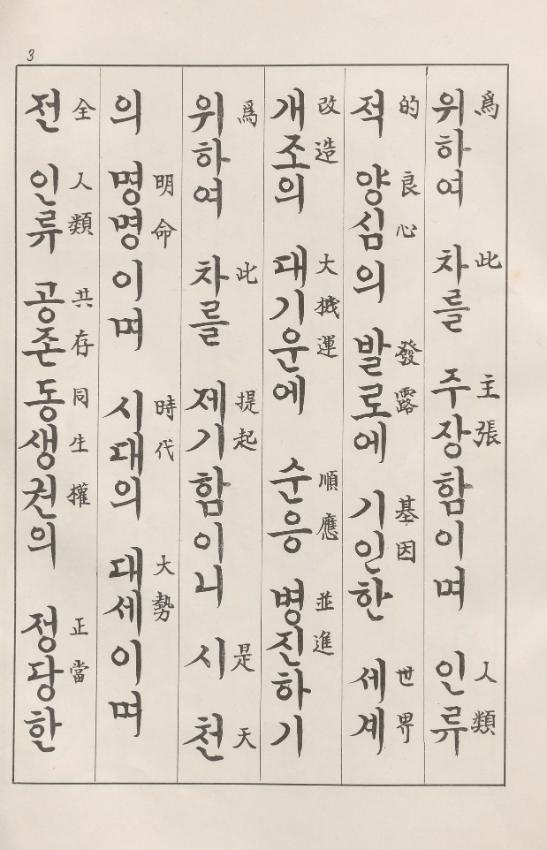 3
위하여 차를 주장함이며 인류
爲 此 主張 人類
적 양심의 발로에 기인한 세계
的 良心 發露 基因 世界
개조의 대기운에 순응 병진하기
改造 大機運 順應 並進
위하여 차를 제기함이니 시 천
爲 此 提起 是 天
의 명명이며 시대의 대세이며
明命 時代 大勢
전 인류 공존 동생권의 정당한
全 人類 共存 同生權 正當